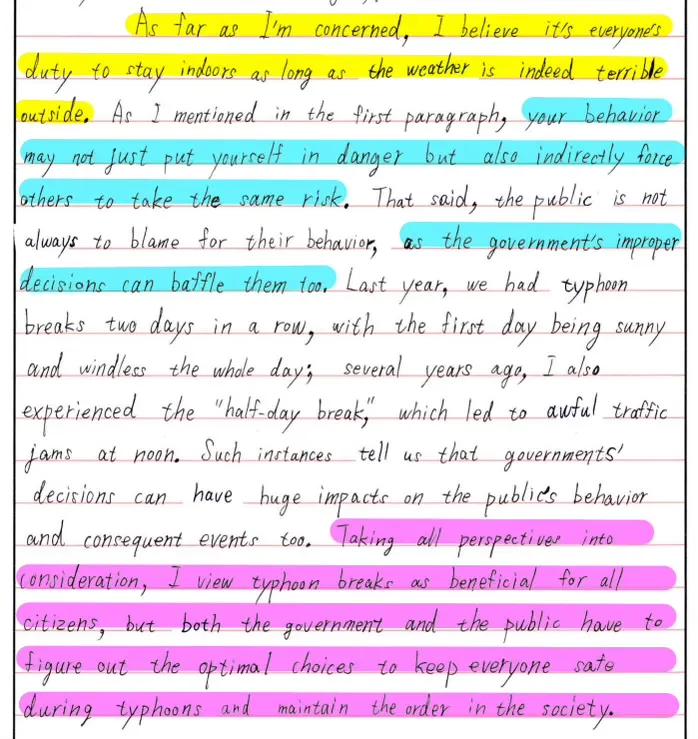 As far as I'm concerned, I believe it's everyone's
duty to stay indoors as long as the weather is indeed terrible
outside. As I mentioned in the first paragraph, your behavior
may not just put yourself in danger but also indirectly force
others to take the same risk. That said, the public is not
always to blame for their behavior, as the government's improper
decisions can baffle them too. Last year, we had typhoon
breaks two days in a row, with the first day being sunny
and windless the whole day; several years ago, I also
experienced the "half-day break," which led to awful traffic
jams at noon. Such instances tell us that governments'
decisions can have huge impacts on the public's behavior
and consequent events too. Taking all perspectives into
consideration, I view typhoon breaks as beneficial for all
citizens, but both the government and the public have to
figure out the optimal choices to keep everyone safe
during typhoons and maintain the order in the society.